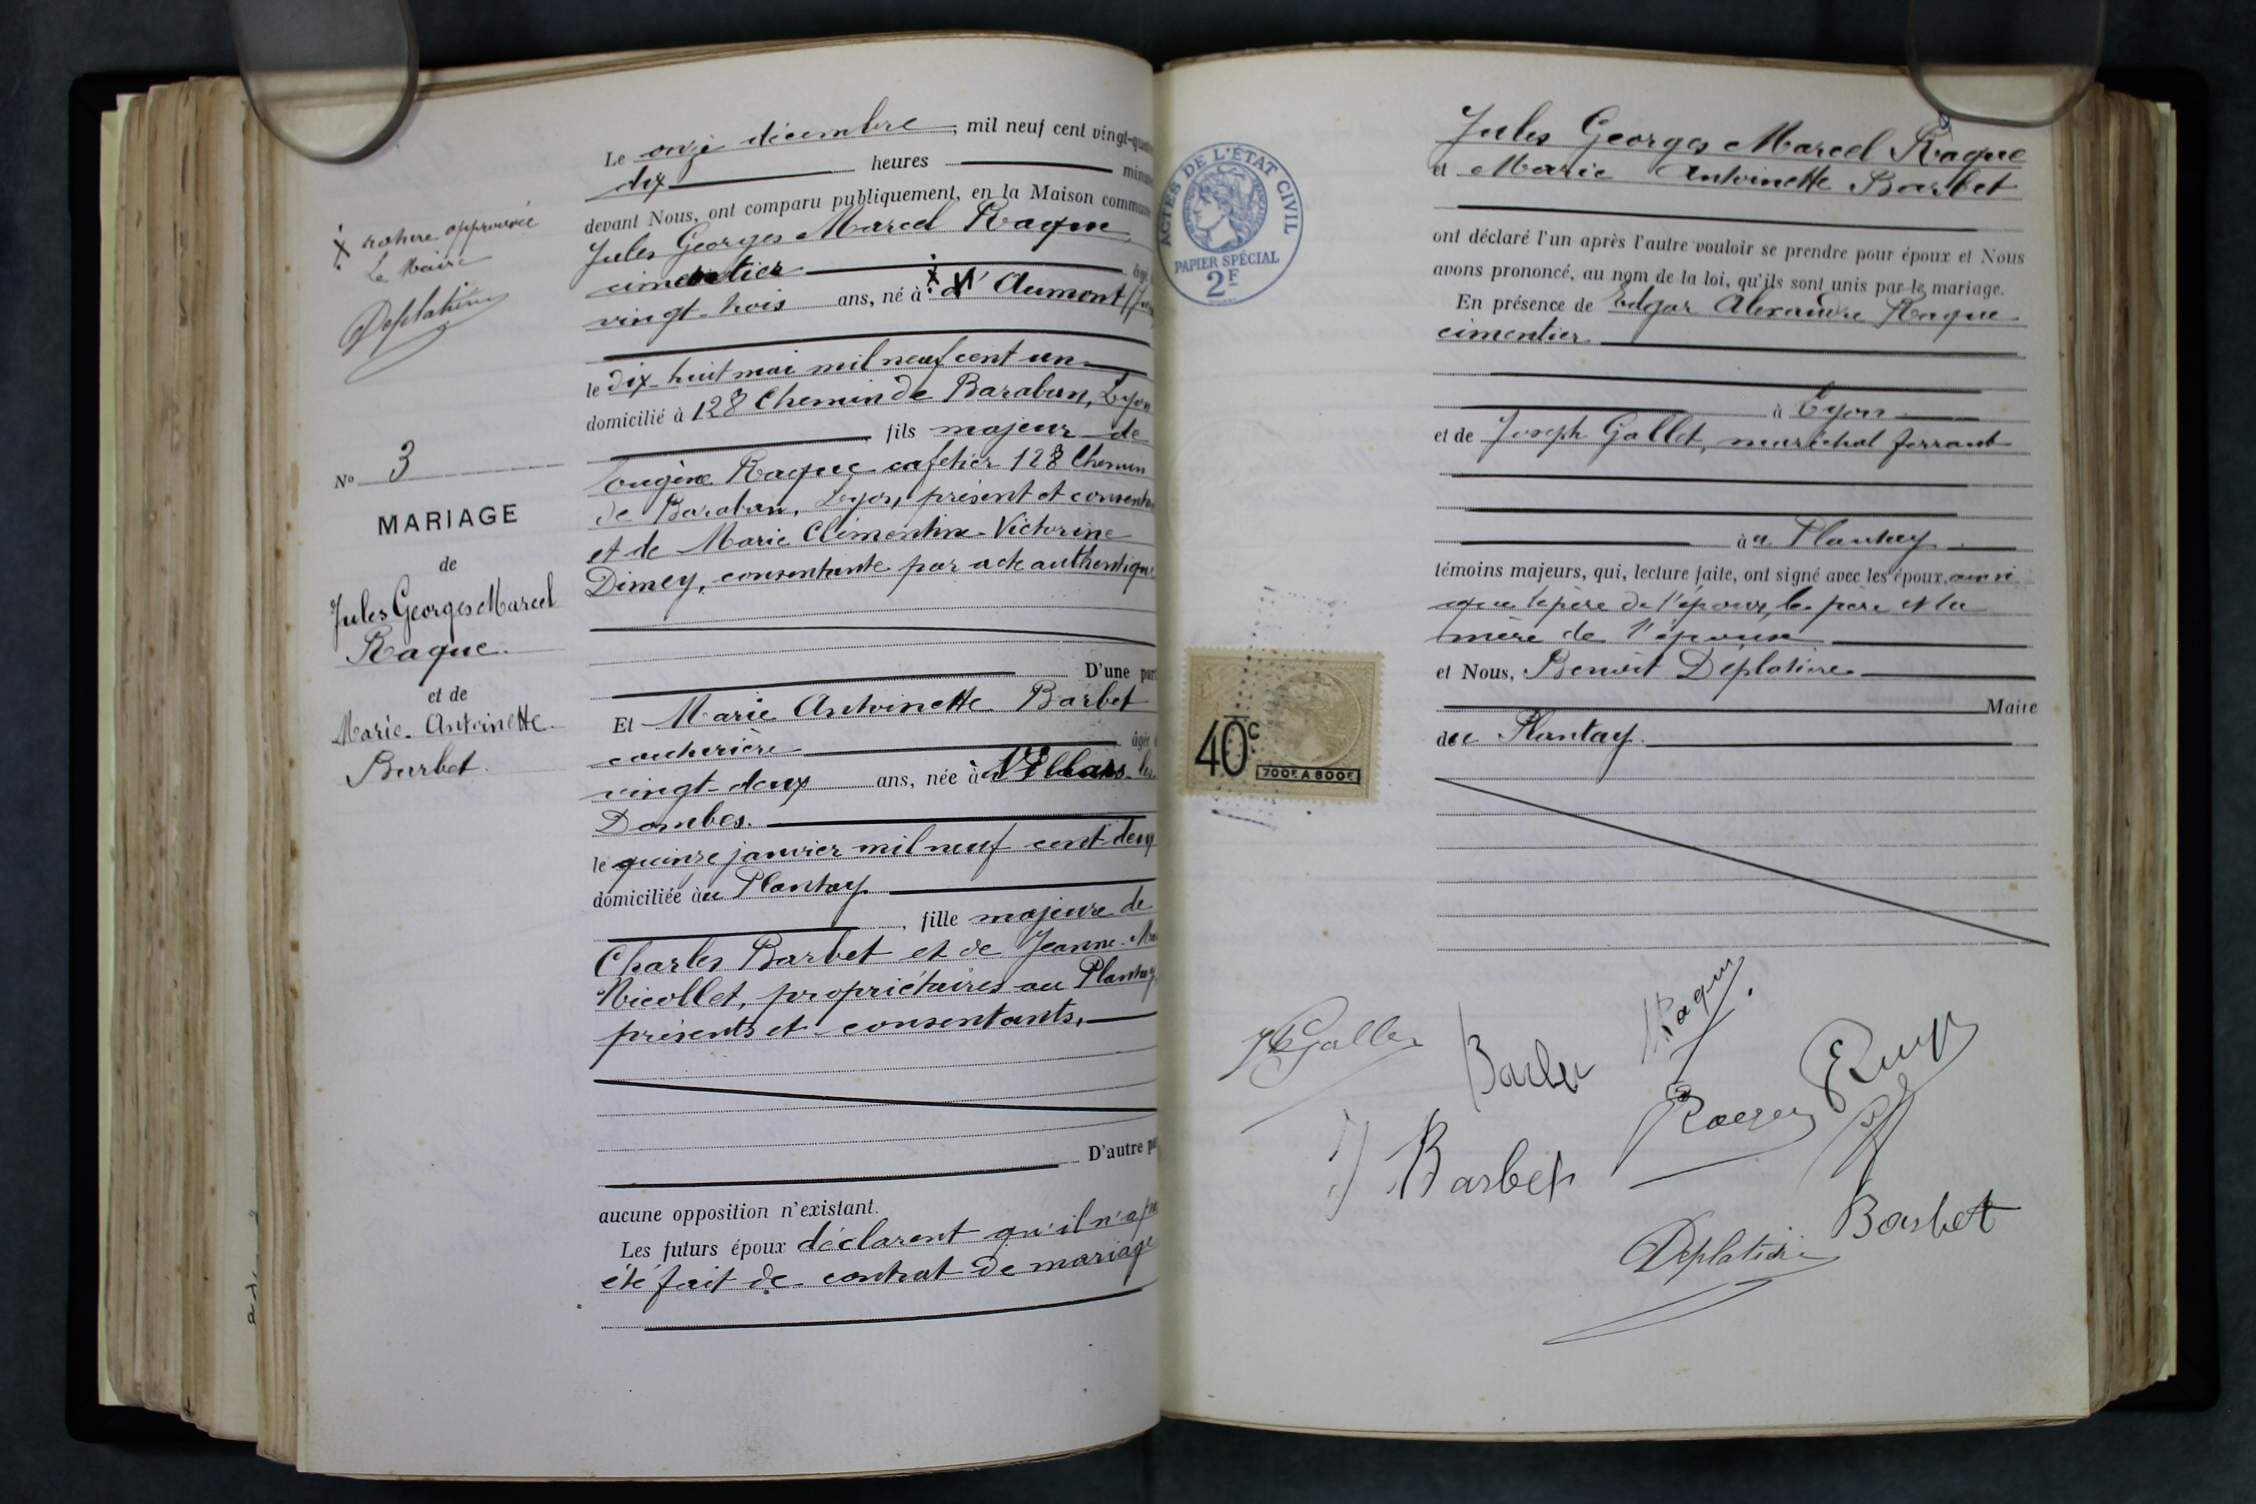 Le onze décembre, mil neuf cent vingt-quatre
dix heures minutes
devant Nous, ont comparu publiquement, en la Maison commune
Jules Georges Marcel Raque
cimentier âgé
vingt-trois ans, né à d'Aumont (Jura
le dix-huit mai mil neuf cent un
domicilié à 128 Chemin de Baraban, Lyon
fils majeur de
Eugène Raque cafetier 128 Chemin
de Baraban, Lyon, présent et consentant
et de Marie Clémentine Victorine
Dimey, consentante par acte authentique
D'une part
Et Marie Antoinette Barbet
couturière âgée
vingt-deux ans, née à Villars les
Dombes.
le quinze janvier mil neuf cent deux
domiciliée au Plantay
, fille majeure de
Charles Barbet et de Jeanne-
Nicollet, propriétaires au Plantay
présents et consentants.
D'autre part
aucune opposition n'existant.
Les futurs époux déclarent qu'il n'a pas
été fait de contrat de mariage
X rature approuvée
Le Maire
Déplatière
No 3
MARIAGE
de
Jules Georges Marcel
Raque.
et de
Marie-Antoinette
Barbet.
ACTES DE L'ÉTAT CIVIL
PAPIER SPÉCIAL
2F
40c
700F A 800F
Jules Georges Marcel Raque
et Marie Antoinette Barbet
ont déclaré l'un après l'autre vouloir se prendre pour époux et Nous
avons prononcé, au nom de la loi, qu'ils sont unis par le mariage.
En présence de Edgar Alexandre Raque
cimentier
à Lyon
et de Joseph Gallet, maréchal ferrant
à au Plantay
témoins majeurs, qui, lecture faite, ont signé avec les époux, ainsi
que le père de l'époux, le père et la
mère de l'épouse
et Nous, Benoit Déplatière
Maire
du Plantay.
Gallet
Barbet
Raque
J Barbet
Déplatière
Barbet